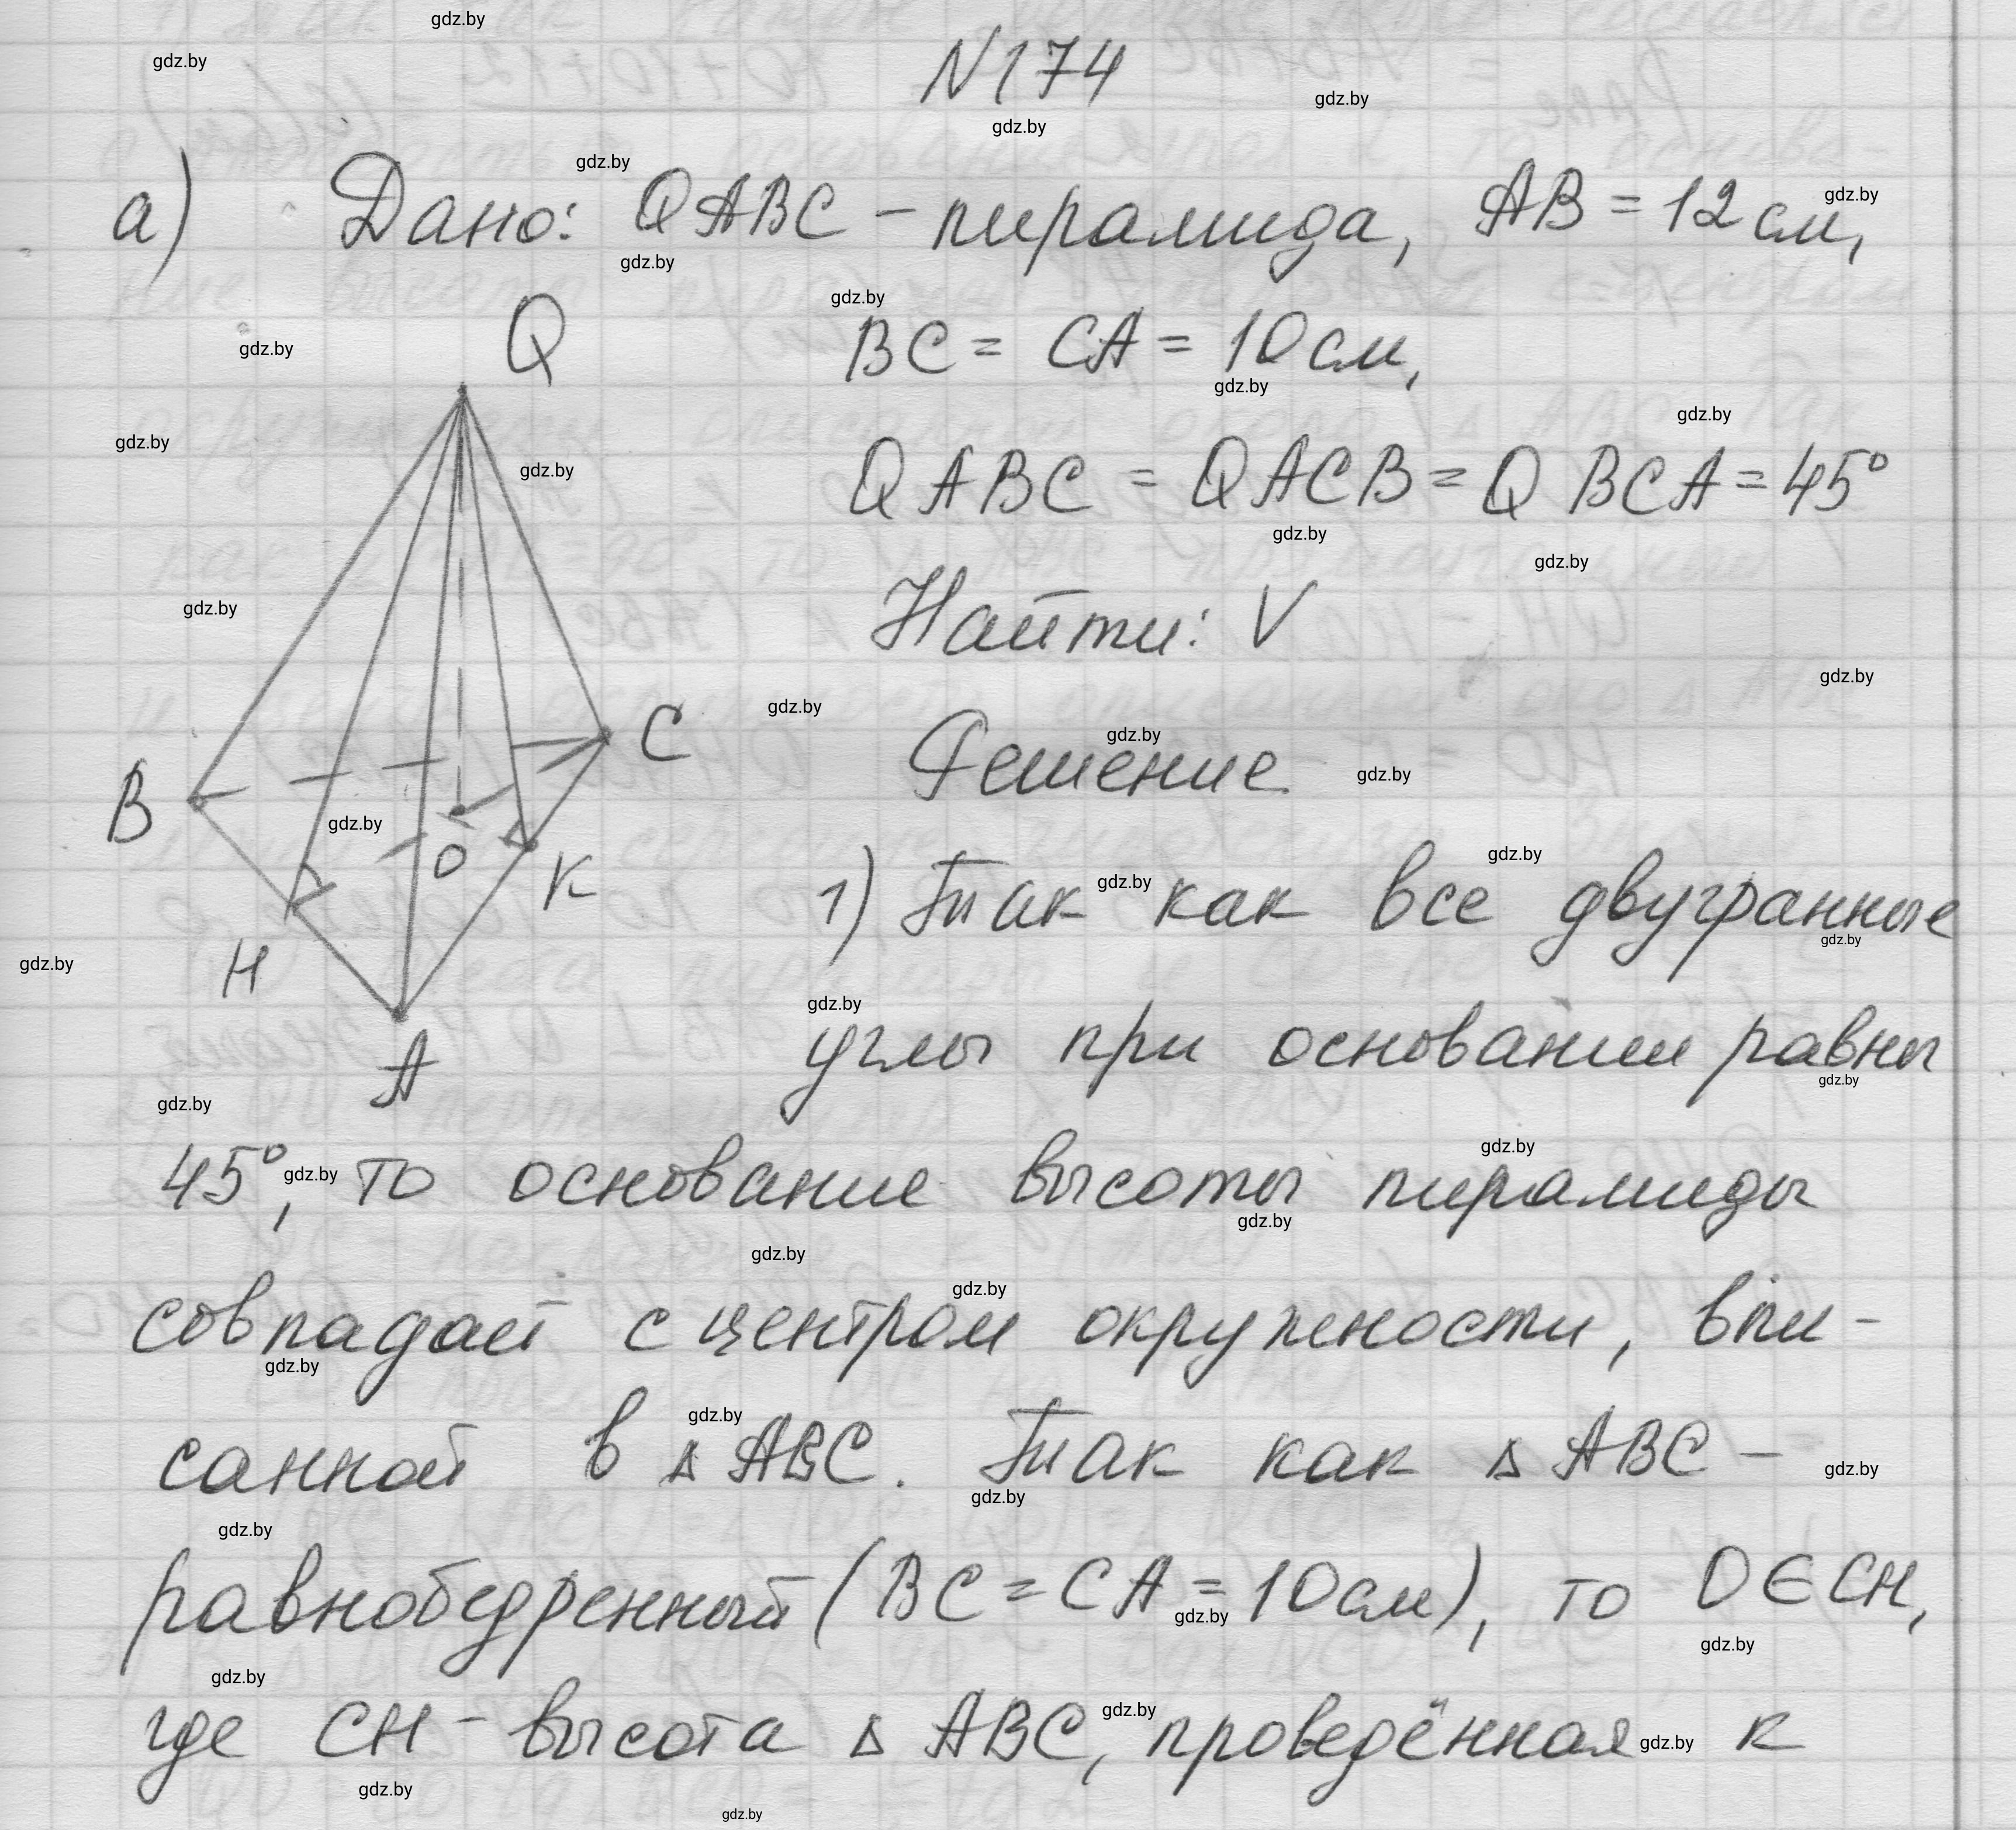 N 174
а) Дано: QABC - пирамида, AB = 12 см,
BC = CA = 10 см,
QABC = QACB = QBCA = 45°
Найти: V
Решение
Q
B
C
O
K
H
A
1) Так как все двугранные
углы при основании равны
45°, то основание высоты пирамиды
совпадает с центром окружности, впи-
санной в △ABC. Так как △ABC -
равнобедренный (BC = CA = 10 см), то O ∈ CH,
где CH - высота △ABC, проведённая к
gdz.by